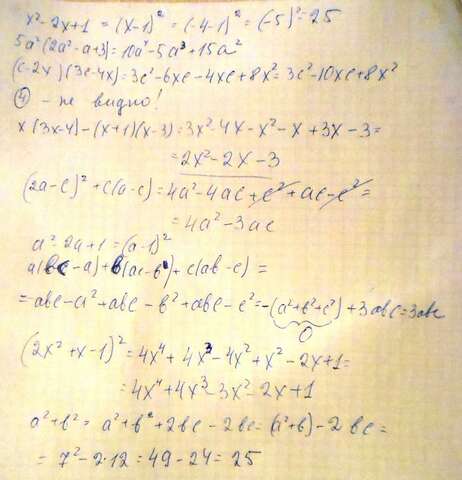 x² - 2x + 1 = (x-1)² = (-4-1)² = (-5)² = 25
5a²(2a²-a+3) = 10a⁴ - 5a³ + 15a²
(c-2x)(3c-4x) = 3c² - 6xc - 4xc + 8x² = 3c² - 10xc + 8x²
④ - не видно!
x(3x-4) - (x+1)(x-3) = 3x² - 4x - x² - x + 3x - 3 =
= 2x² - 2x - 3
(2a-c)² + c(a-c) = 4a² - 4ac + c² + ac - c² =
= 4a² - 3ac
a² - 2a + 1 = (a-1)²
a(bc-a) + b(ac-b) + c(ab-c) =
= abc - a² + abc - b² + abc - c² = -(a²+b²+c²) + 3abc = 3abc
0
(2x²+x-1)² = 4x⁴ + 4x³ - 4x² + x² - 2x + 1 =
= 4x⁴ + 4x³ - 3x² - 2x + 1
a² + b² = a² + b² + 2bc - 2bc = (a²+b) - 2bc =
= 7² - 2·12 = 49 - 24 = 25